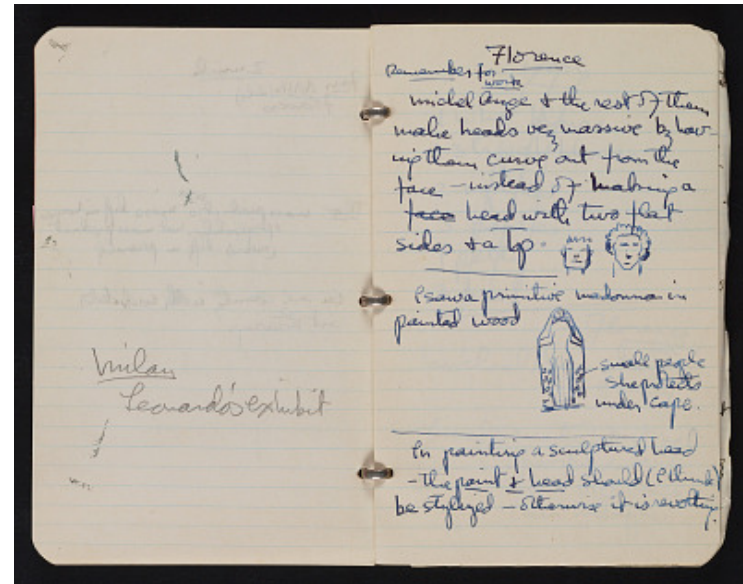 Milan
Leonardo's exhibit
Florence
Remember for
work
Michel Ange & the rest of them
make heads very massive by hav-
ing them curve out from the
face - instead of making a
face head with two flat
sides & a top.
I saw a primitive madonna in
painted wood
small people
she protects
under cape.
In painting a sculptured head
- the paint & head should (I think)
be stylized - otherwise it is revolting.